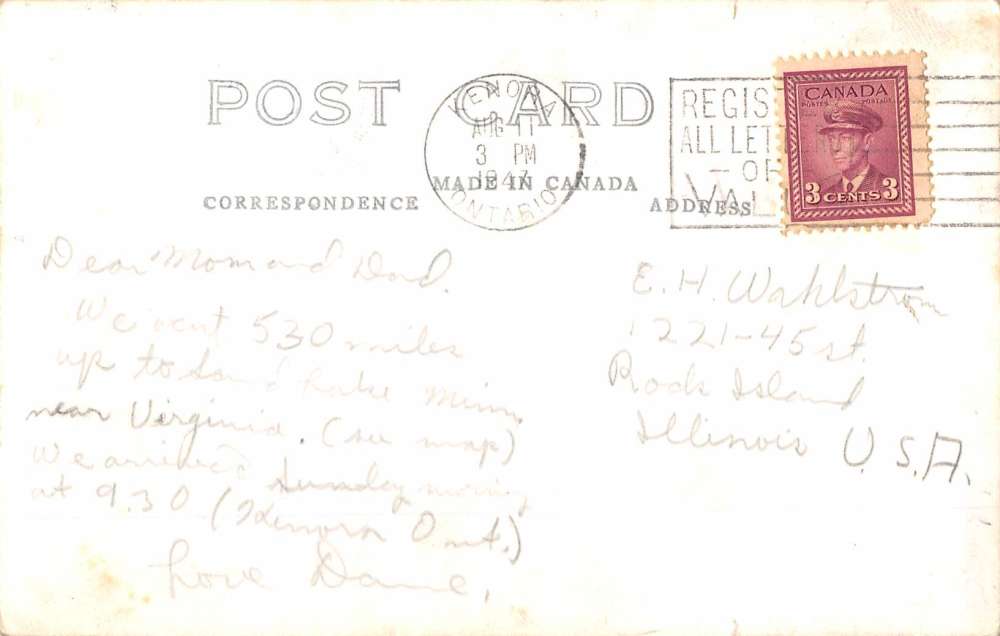 POST CARD
KENORA
AUG 11
3 PM
1947
ONTARIO
MADE IN CANADA
CORRESPONDENCE
ADDRESS
REGIS
ALL LET
— OF
VAL
CANADA
POSTES POSTAGE
3 CENTS 3
Dear Mom and Dad.
We went 530 miles
up to Sand Lake Minn.
near Virginia. (see map)
We arrived Sunday morning
at 9.30 (Kenora Ont.)
Love Dave,
E. H. Wahlstrom
1221-45 st.
Rock Island
Illinois U.S.A.